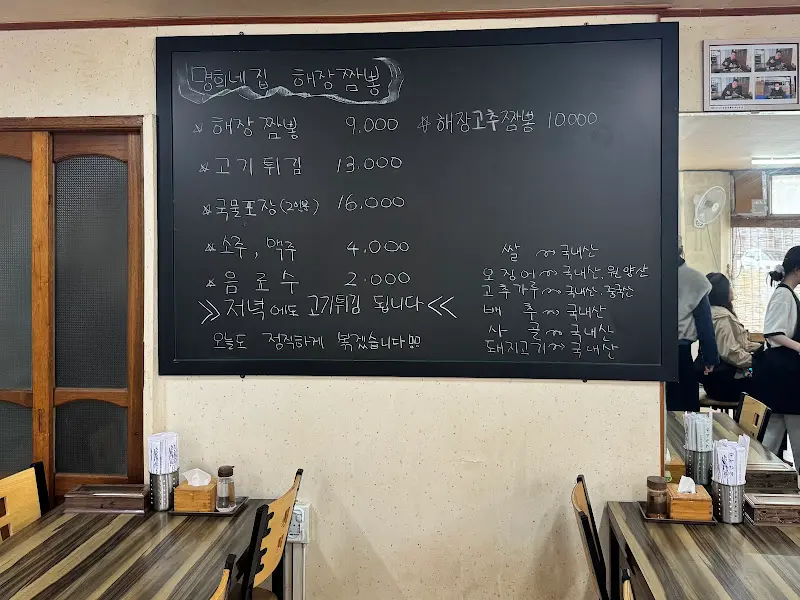 명희네집 해장짬뽕
☆ 해장짬뽕 9.000
☆ 해장고추짬뽕 10000
☆ 고기튀김 13.000
☆ 국물포장(2인용) 16.000
☆ 소주, 맥주 4.000
☆ 음료수 2.000
》 저녁에도 고기튀김 됩니다 《
오늘도 정직하게 볶겠습니다!!
쌀 ~ 국내산
오징어 ~ 국내산, 원양산
고추가루 ~ 국내산, 중국산
배추 ~ 국내산
사골 ~ 국내산
돼지고기 ~ 국내산